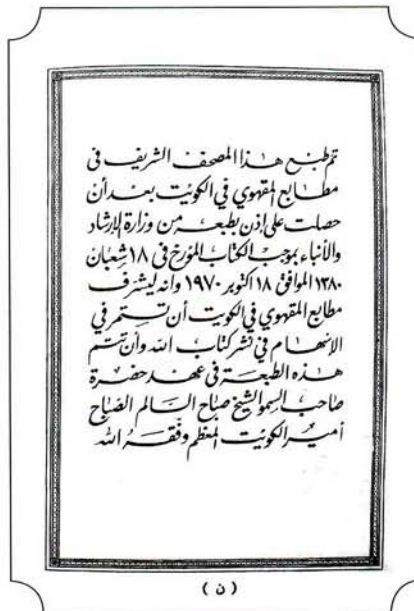 تم طبع هذا المصحف الشريف في
مطابع المقهوي في الكويت بعد أن
حصلت على إذن بطبعه من وزارة الإرشاد
والأنباء بموجب الكتاب المؤرخ في ١٨ شعبان
١٣٨٠ الموافق ١٨ اكتوبر ١٩٧٠ وانه ليشرف
مطابع المقهوي في الكويت أن تستمر في
الإسهام في نشر كتاب الله وأن تتم
هذه الطبعة في عهد حضرة
صاحب السمو الشيخ صباح السالم الصباح
أمير الكويت المعظم وفقه الله
( ن )